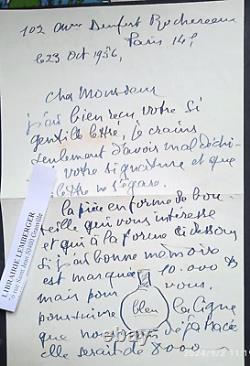 102 avenue Denfert Rochereau
Paris 14e
le 23 Oct 1956,
Cher Monsieur
j'ai bien reçu votre si
gentille lettre, je crains
seulement d'avoir mal déchi-
votre signature et que
lettre ne s'égare.
la pièce en forme de bou-
teille qui vous intéresse
et qui a la forme ci dessous
si j'ai bonne mémoire
est marquée 10.000
mais pour vous
poursuivre la ligne
bleu
que nous avons déjà tracé
elle serait de 8000
LIBRAIRIE LEMBERGER
2024/9/2 11:1